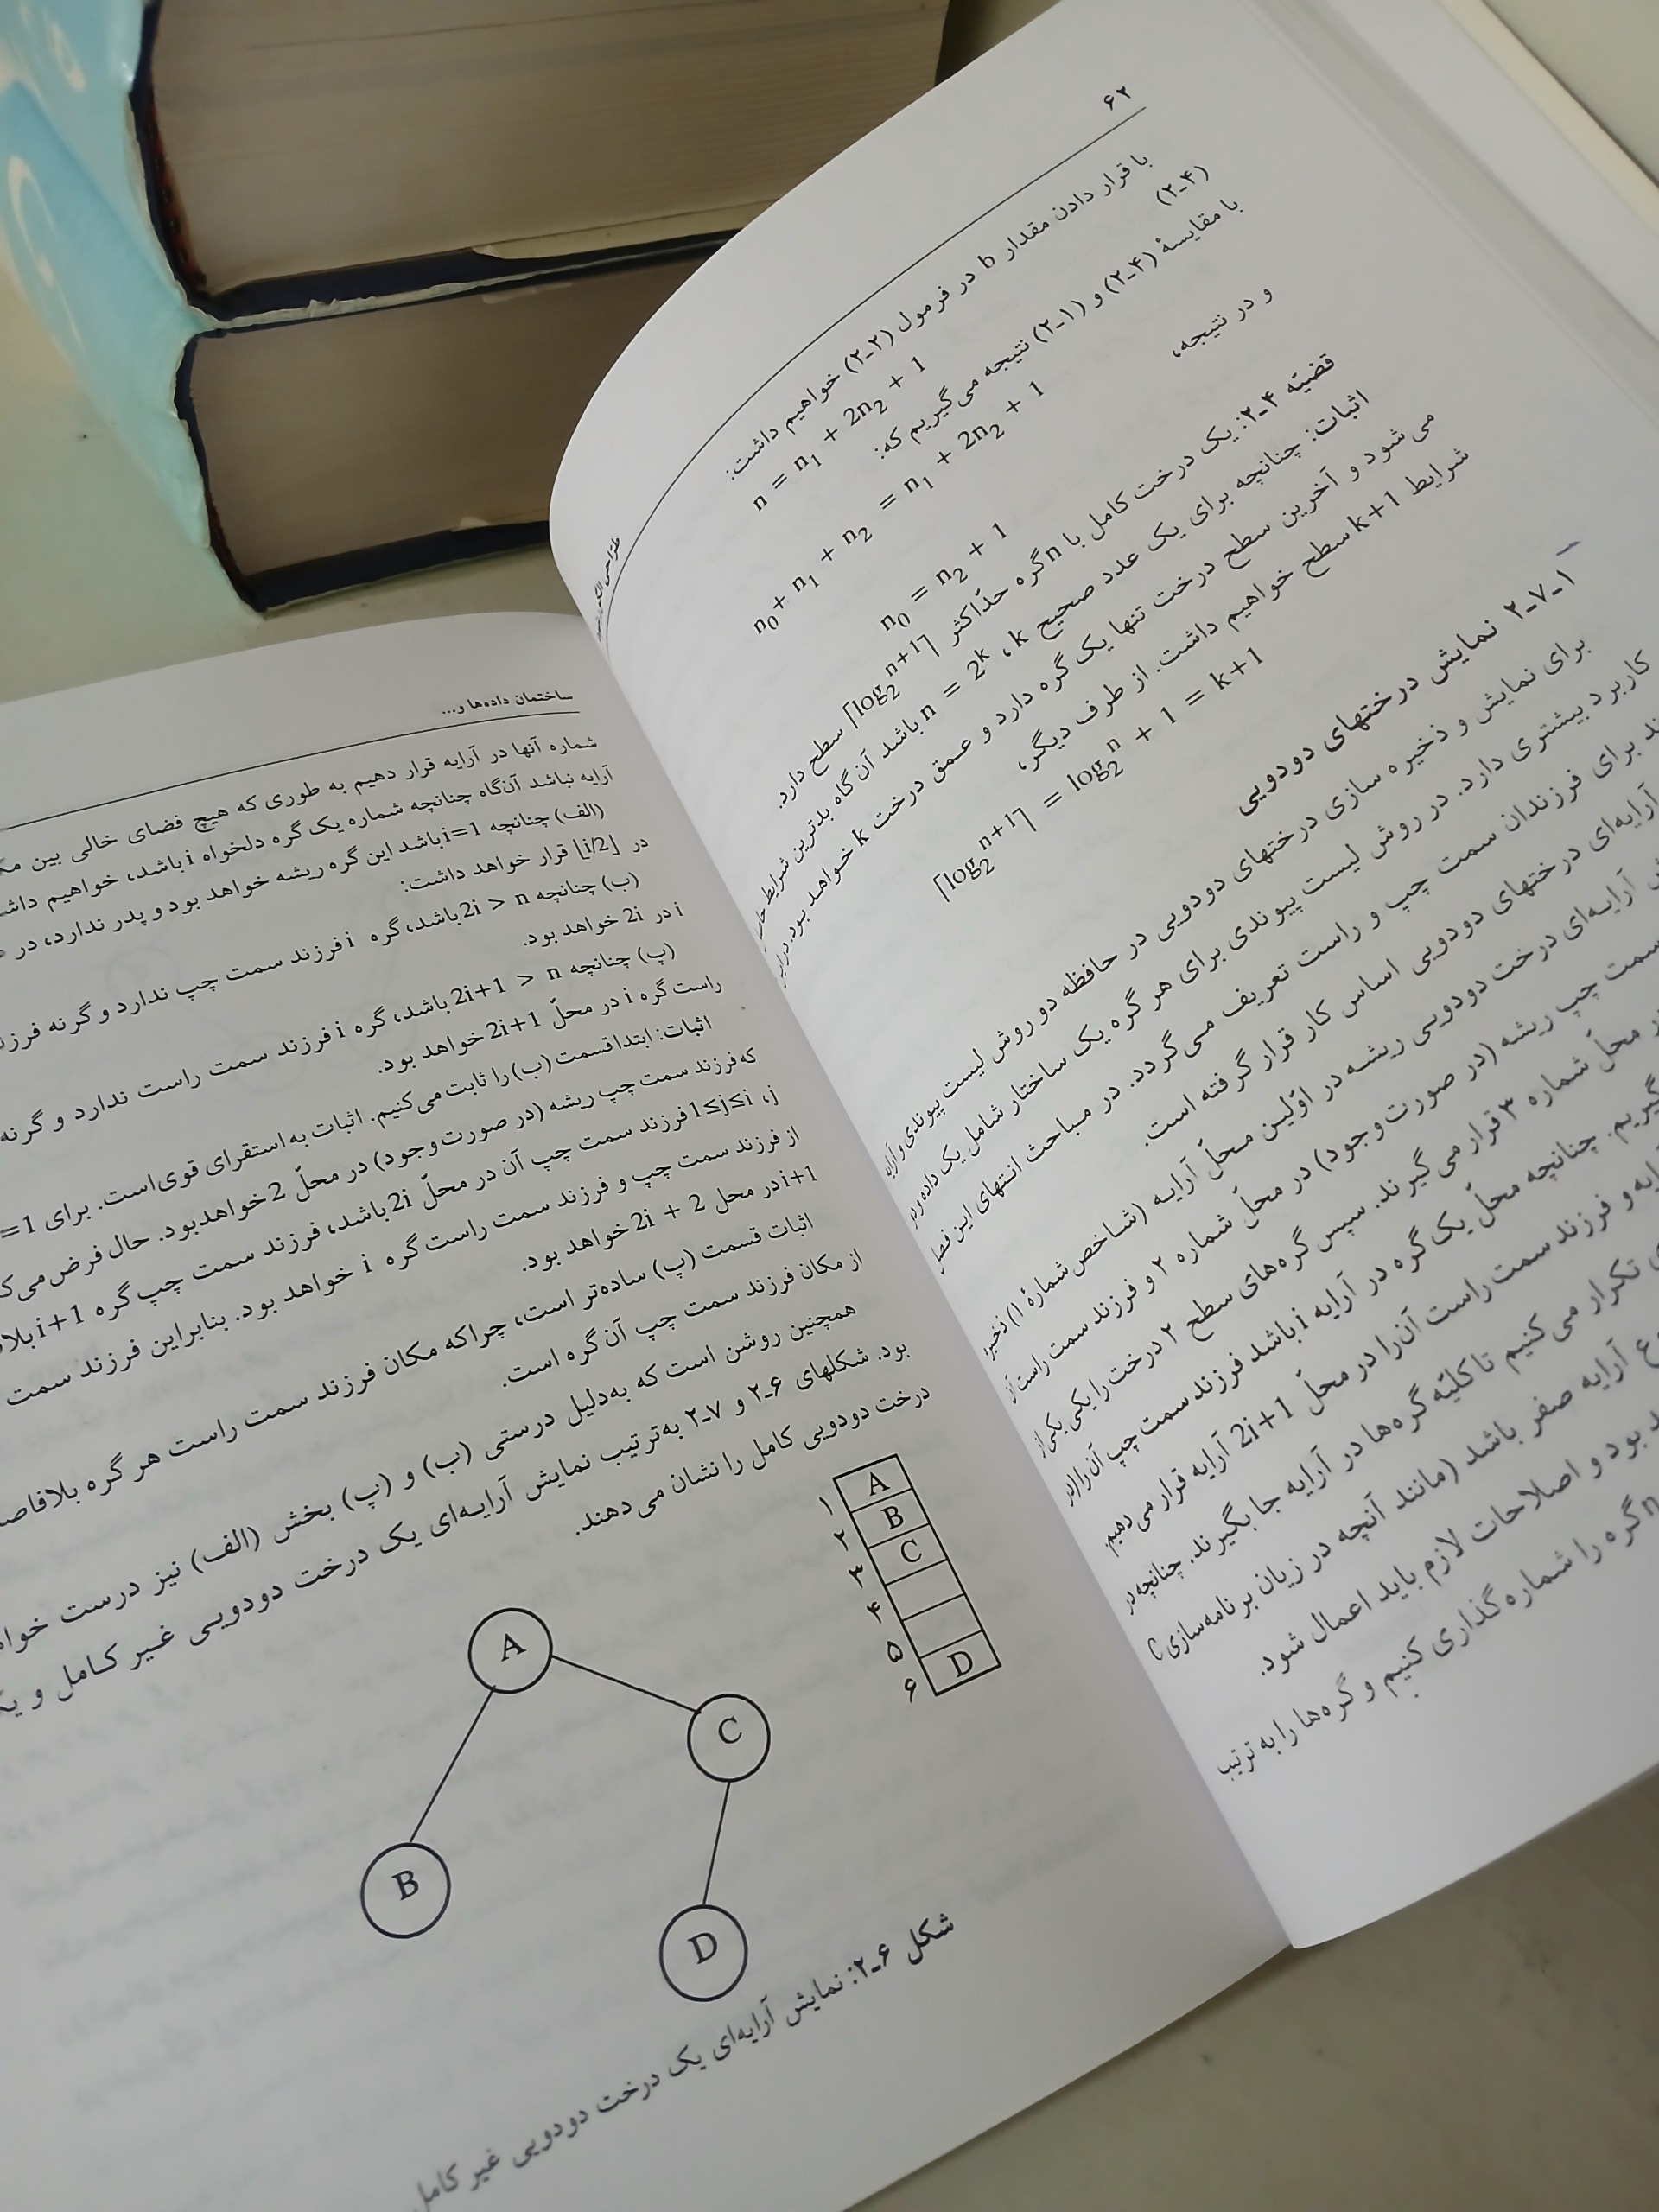 ۶۲
با قرار دادن مقدار b در فرمول (۲ـ۲) خواهیم داشت:
(۲ـ۴)
n = n₁ + 2n₂ + 1
با مقایسۀ (۲ـ۴) و (۲ـ۱) نتیجه می‌گیریم که:
n₀ + n₁ + n₂ = n₁ + 2n₂ + 1
و در نتیجه،
n₀ = n₂ + 1
قضیّه ۲ـ۴: یک درخت کامل با n گره حدّاکثر ⌈log₂ⁿ⁺¹⌉ سطح دارد.
اثبات: چنانچه برای یک عدد صحیح k ، n = 2ᵏ باشد آن‌گاه بدترین شرایط
می شود و آخرین سطح درخت تنها یک گره دارد و عمق درخت k خواهد بود.
شرایط k+1 سطح خواهیم داشت. از طرف دیگر،
⌈log₂ⁿ⁺¹⌉ = log₂ⁿ + 1 = k+1
۲ـ۷ـ۱ نمایش درختهای دودویی
برای نمایش و ذخیره سازی درختهای دودویی در حافظه دو روش لیست پیوندی و آرایه
کاربرد بیشتری دارد. در روش لیست پیوندی برای هر گره یک ساختار شامل یک داده و دو
برای فرزندان سمت چپ و راست تعریف می‌گردد. در مباحث انتهای این فصل
آرایه‌ای درختهای دودویی اساس کار قرار گرفته است.
آرایه‌ای درخت دودویی ریشه در اوّلین محلّ آرایه (شاخص شمارۀ ۱) ذخیره
سمت چپ ریشه (در صورت وجود) در محلّ شماره ۲ و فرزند سمت راست آن
محلّ شماره ۳ قرار می گیرند. سپس گره‌های سطح ۲ درخت را یکی یکی از
گیریم. چنانچه محلّ یک گره در آرایه i باشد فرزند سمت چپ آن را در
و فرزند سمت راست آن‌را در محلّ 2i+1 آرایه قرار می دهیم.
تکرار می کنیم تا کلیّه گره‌ها در آرایه جا بگیرند. چنانچه در
آرایه صفر باشد (مانند آنچه در زبان برنامه‌سازی C
بود و اصلاحات لازم باید اعمال شود.
n گره را شماره گذاری کنیم و گره‌ها را به ترتیب
ساختمان داده‌ها و...
شماره آنها در آرایه قرار دهیم به طوری که هیچ فضای خالی بین
آرایه نباشد آن‌گاه چنانچه شماره یک گره دلخواه i باشد، خواهیم
(الف) چنانچه i=1 باشد این گره ریشه خواهد بود و پدر ندارد، در
در ⌊i/2⌋ قرار خواهد داشت:
(ب) چنانچه 2i > n باشد، گره i فرزند سمت چپ ندارد و گرنه
i در 2i خواهد بود.
(پ) چنانچه 2i+1 > n باشد، گره i فرزند سمت راست ندارد و گرنه
راست گره i در محلّ 2i+1 خواهد بود.
اثبات: ابتدا قسمت (ب) را ثابت می‌کنیم. اثبات به استقرای قوی است. برای
که فرزند سمت چپ ریشه (در صورت وجود) در محلّ 2 خواهد بود. حال فرض
j ، 1≤j≤i فرزند سمت چپ آن در محلّ 2i باشد، فرزند سمت چپ گره i+1
از فرزند سمت چپ و فرزند سمت راست گره i خواهد بود. بنابراین فرزند سمت
i+1 در محل 2i + 2 خواهد بود.
اثبات قسمت (پ) ساده‌تر است، چراکه مکان فرزند سمت راست هر گره
از مکان فرزند سمت چپ آن گره است.
همچنین روشن است که به‌دلیل درستی (ب) و (پ) بخش (الف) نیز درست
بود. شکلهای ۲ـ۶ و ۲ـ۷ به‌ترتیب نمایش آرایه‌ای یک درخت دودویی غیر کامل و
درخت دودویی کامل را نشان می دهند.
۱ A
۲ B
۳ C
۴
۵
۶ D
A
C
B
D
شکل ۲ـ۶: نمایش آرایه‌ای یک درخت دودویی غیر کامل